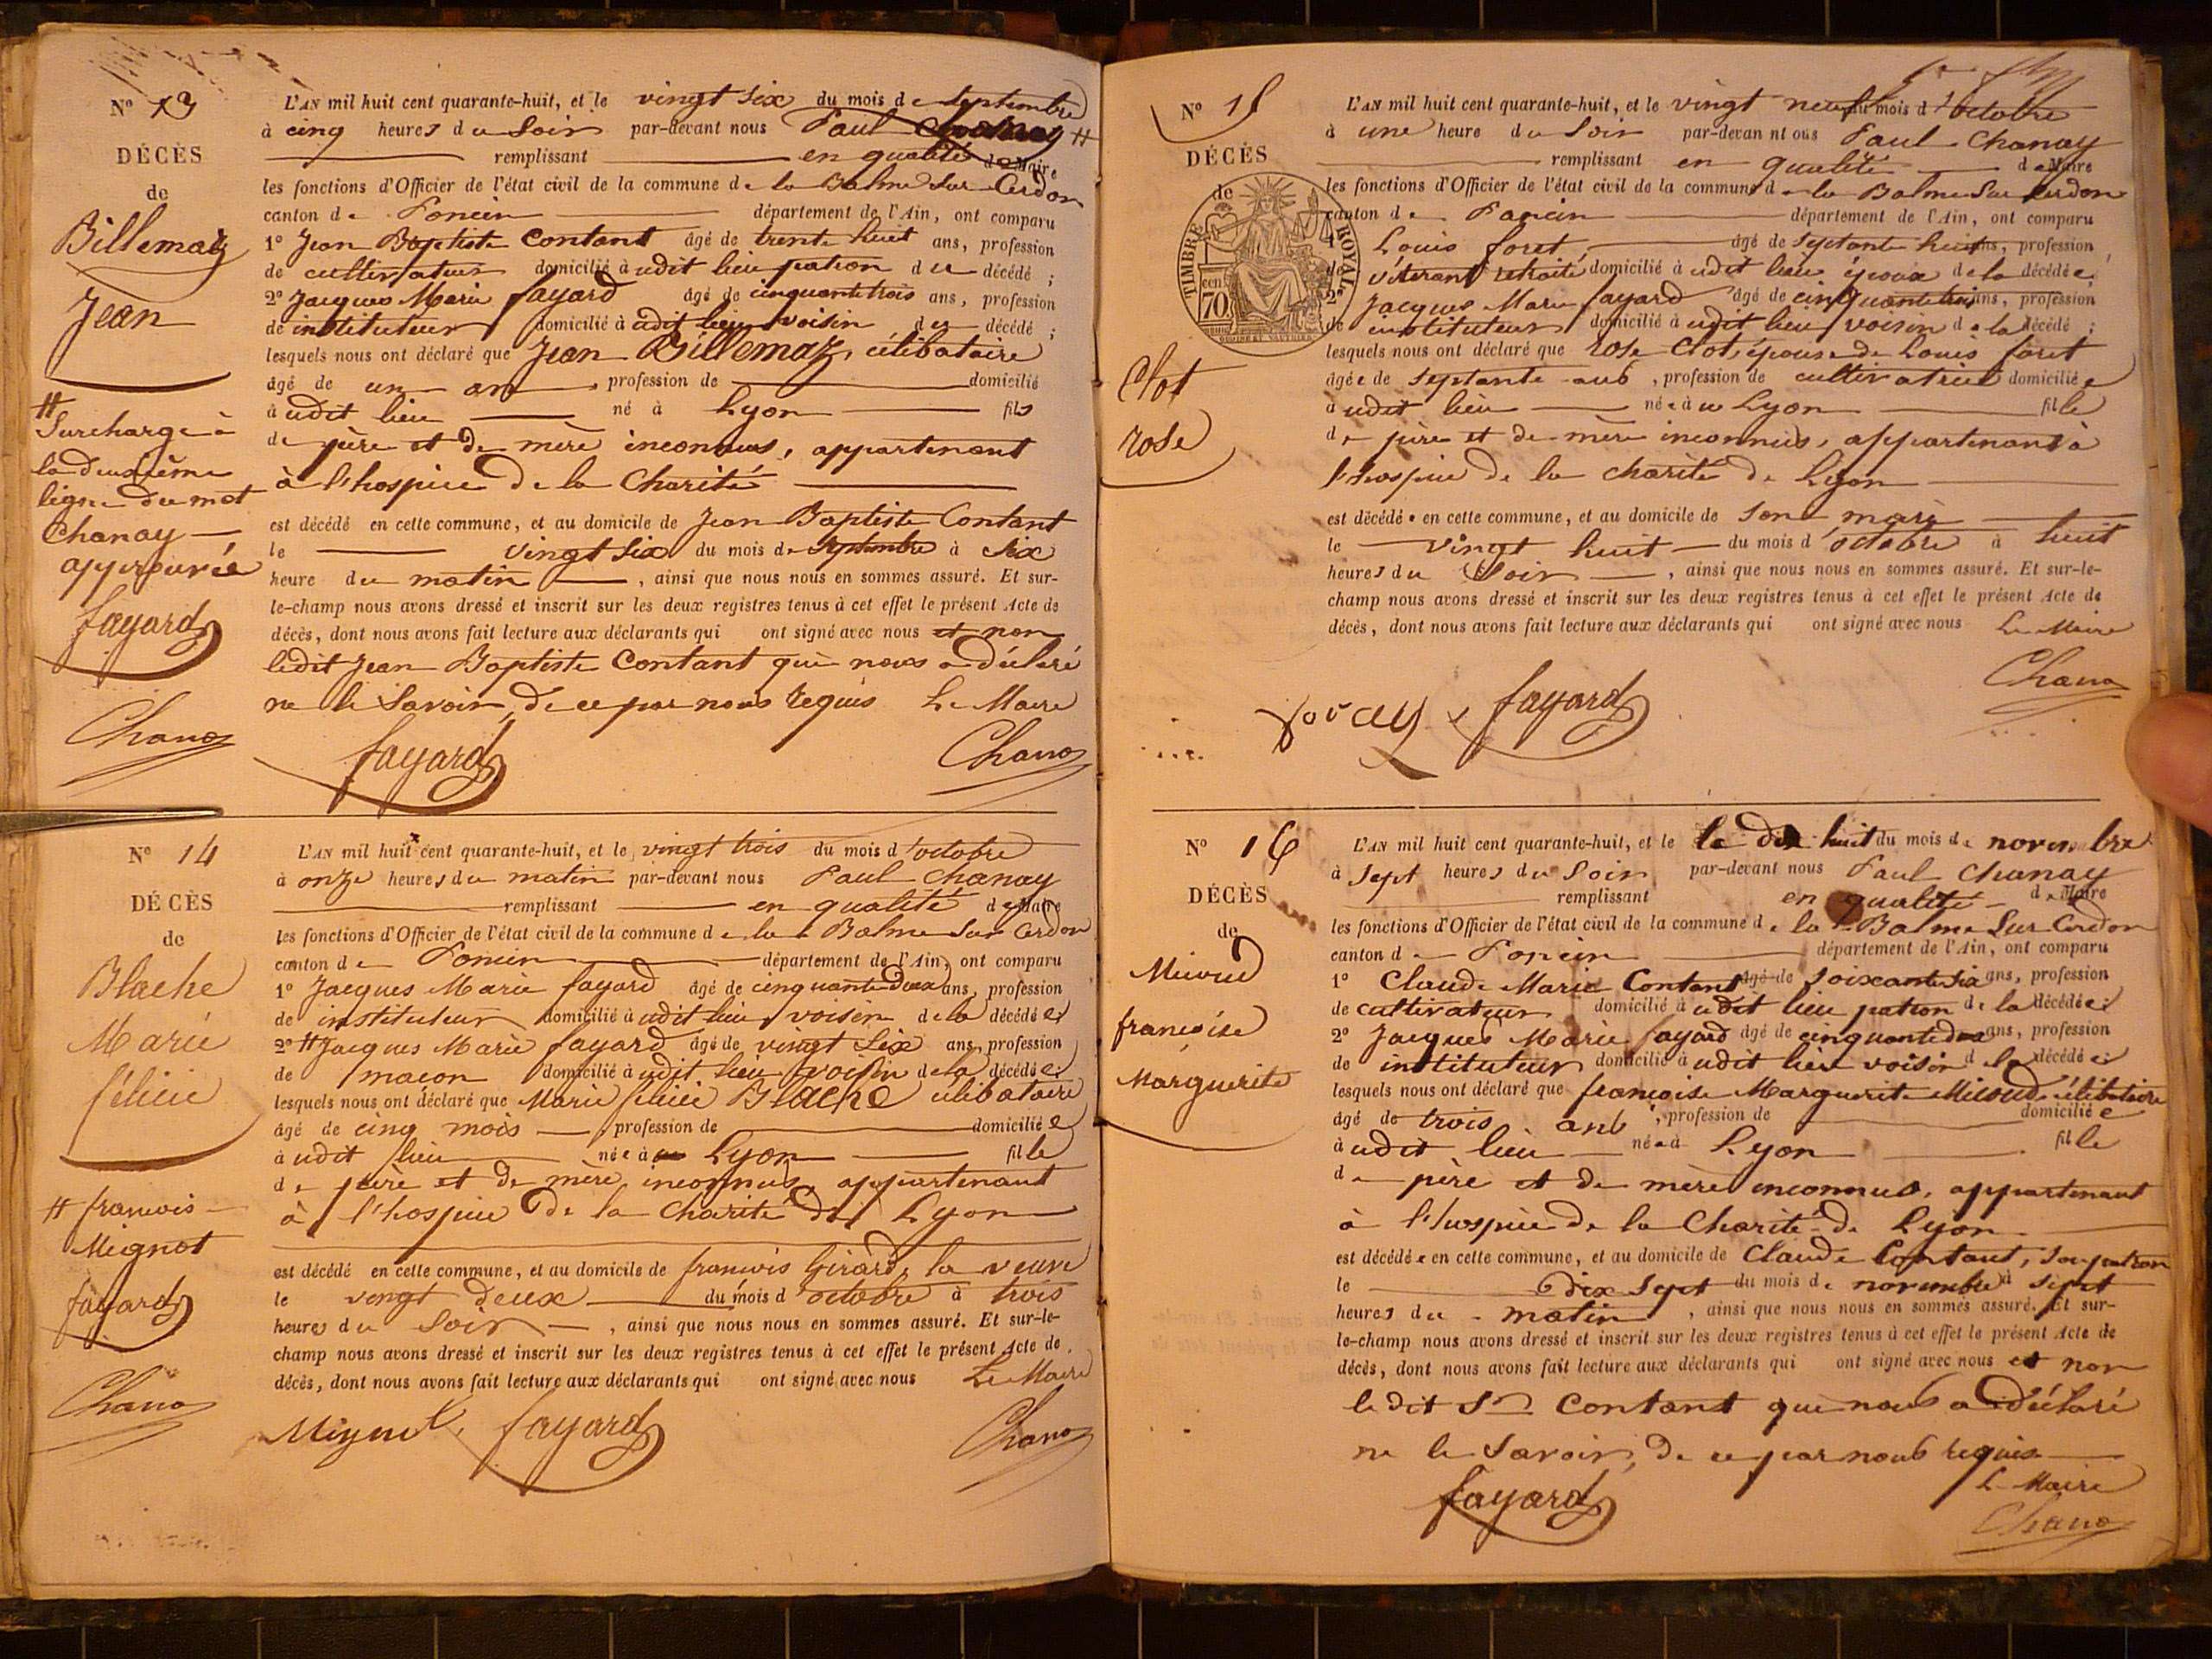 Nº 13
DÉCÈS
de
Billemaz
Jean
#
Surcharge à
la deuxième
ligne du mot
Chanay
approuvée
fayard
Chanay
L'AN mil huit cent quarante-huit, et le vingt six du mois de septembre
à cinq heures du soir par-devant nous Paul Chanay #
remplissant en qualité de Maire
les fonctions d'Officier de l'état civil de la commune de la Balme sur Cerdon
canton de Poncin département de l'Ain, ont comparu
1º Jean Baptiste Contant âgé de trente huit ans, profession
de cultivateur domicilié à udit lieu patron du décédé ;
2º Jacques Marie fayard âgé de cinquante trois ans, profession
de instituteur domicilié à udit lieu voisin du décédé ;
lesquels nous ont déclaré que Jean Billemaz, célibataire
âgé de un an, profession de domicilié
à udit lieu né à Lyon fils
de père et de mère inconnus, appartenant
à l'hospice de la Charité
est décédé en cette commune, et au domicile de Jean Baptiste Contant
le vingt six du mois de septembre à six
heure du matin, ainsi que nous nous en sommes assuré. Et sur-
le-champ nous avons dressé et inscrit sur les deux registres tenus à cet effet le présent Acte de
décès, dont nous avons fait lecture aux déclarants qui ont signé avec nous et non
ledit Jean Baptiste Contant qui nous a déclaré
ne le savoir, de ce par nous requis Le Maire
fayard Chanay
Nº 14
DÉCÈS
de
Blache
Marie
félicie
# francois
Mignot
fayard
Chanay
L'AN mil huit cent quarante-huit, et le vingt trois du mois d'octobre
à onze heures du matin par-devant nous Paul Chanay
remplissant en qualité de Maire
les fonctions d'Officier de l'état civil de la commune de la Balme sur Cerdon
canton de Poncin département de l'Ain, ont comparu
1º Jacques Marie fayard âgé de cinquante deux ans, profession
de instituteur domicilié à udit lieu, voisin de la décédée
2º # Jacques Marie fayard âgé de vingt six ans, profession
de macon domicilié à udit lieu voisin de la décédée
lesquels nous ont déclaré que Marie félicie Blache célibataire
âgé de cinq mois, profession de domiciliée
à udit lieu née à Lyon fille
de père et de mère inconnus, appartenant
à l'hospice de la Charité de Lyon
est décédé en cette commune, et au domicile de francois Girard, la veuve
le vingt deux du mois d'octobre à trois
heures du soir, ainsi que nous nous en sommes assuré. Et sur-le-
champ nous avons dressé et inscrit sur les deux registres tenus à cet effet le présent Acte de
décès, dont nous avons fait lecture aux déclarants qui ont signé avec nous Le Maire
Mignot fayard Chanay
Nº 15
DÉCÈS
de
TIMBRE ROYAL
70 cen
Clot
rose
L'AN mil huit cent quarante-huit, et le vingt neuf du mois d'octobre
à une heure du soir par-devan nt ous Paul Chanay
remplissant en qualité de Maire
les fonctions d'Officier de l'état civil de la commune de la Balme sur Cerdon
canton de Poncin département de l'Ain, ont comparu
1º Louis foret, âgé de septante huit ans, profession
de véterant retraité domicilié à udit lieu époux de la décédée
2º Jacques Marie fayard âgé de cinquante trois ans, profession
de instituteur domicilié à udit lieu voisin de la décédé ;
lesquels nous ont déclaré que rose Clot, épouse de Louis foret
âgée de septante ans, profession de cultivatrice domiciliée
à udit lieu née à Lyon fille
de père et de mère inconnus, appartenant à
l'hospice de la charité de Lyon
est décédée en cette commune, et au domicile de son mari
le vingt huit du mois d'octobre à huit
heures du soir, ainsi que nous nous en sommes assuré. Et sur-le-
champ nous avons dressé et inscrit sur les deux registres tenus à cet effet le présent Acte de
décès, dont nous avons fait lecture aux déclarants qui ont signé avec nous Le Maire
fayard Chanay
Nº 16
DÉCÈS
de
françoise
Marguerite
L'AN mil huit cent quarante-huit, et le le dix huit du mois de novembre
à sept heures du soir par-devant nous Paul Chanay
remplissant en qualité de Maire
les fonctions d'Officier de l'état civil de la commune de la Balme sur Cerdon
canton de Poncin département de l'Ain, ont comparu
1º Claude Marie Contant âgé de soixante six ans, profession
de cultivateur domicilié à udit lieu patron de la décédée
2º Jacques Marie fayard âgé de cinquante deux ans, profession
de instituteur domicilié à udit lieu voisin de la décédée
lesquels nous ont déclaré que françoise Marguerite célibataire
âgé de trois ans, profession de domiciliée
à udit lieu née à Lyon fille
de père et de mère inconnus, appartenant
à l'hospice de la Charité de Lyon
est décédée en cette commune, et au domicile de Claude Contant, son patron
le dix sept du mois de novembre à sept
heures du matin, ainsi que nous nous en sommes assuré. Et sur-
le-champ nous avons dressé et inscrit sur les deux registres tenus à cet effet le présent Acte de
décès, dont nous avons fait lecture aux déclarants qui ont signé avec nous et non
le dit Sr Contant qui nous a déclaré
ne le savoir, de ce par nous requis
Le Maire
fayard Chanay